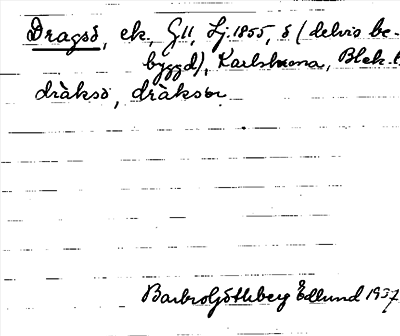 Dragsö, ek., G11, Lj. 1855, ö (delvis be-
byggd), Karlshamna, Blek. l.
dràksö, dràksön
Barbro Göthberg Edlund 1937